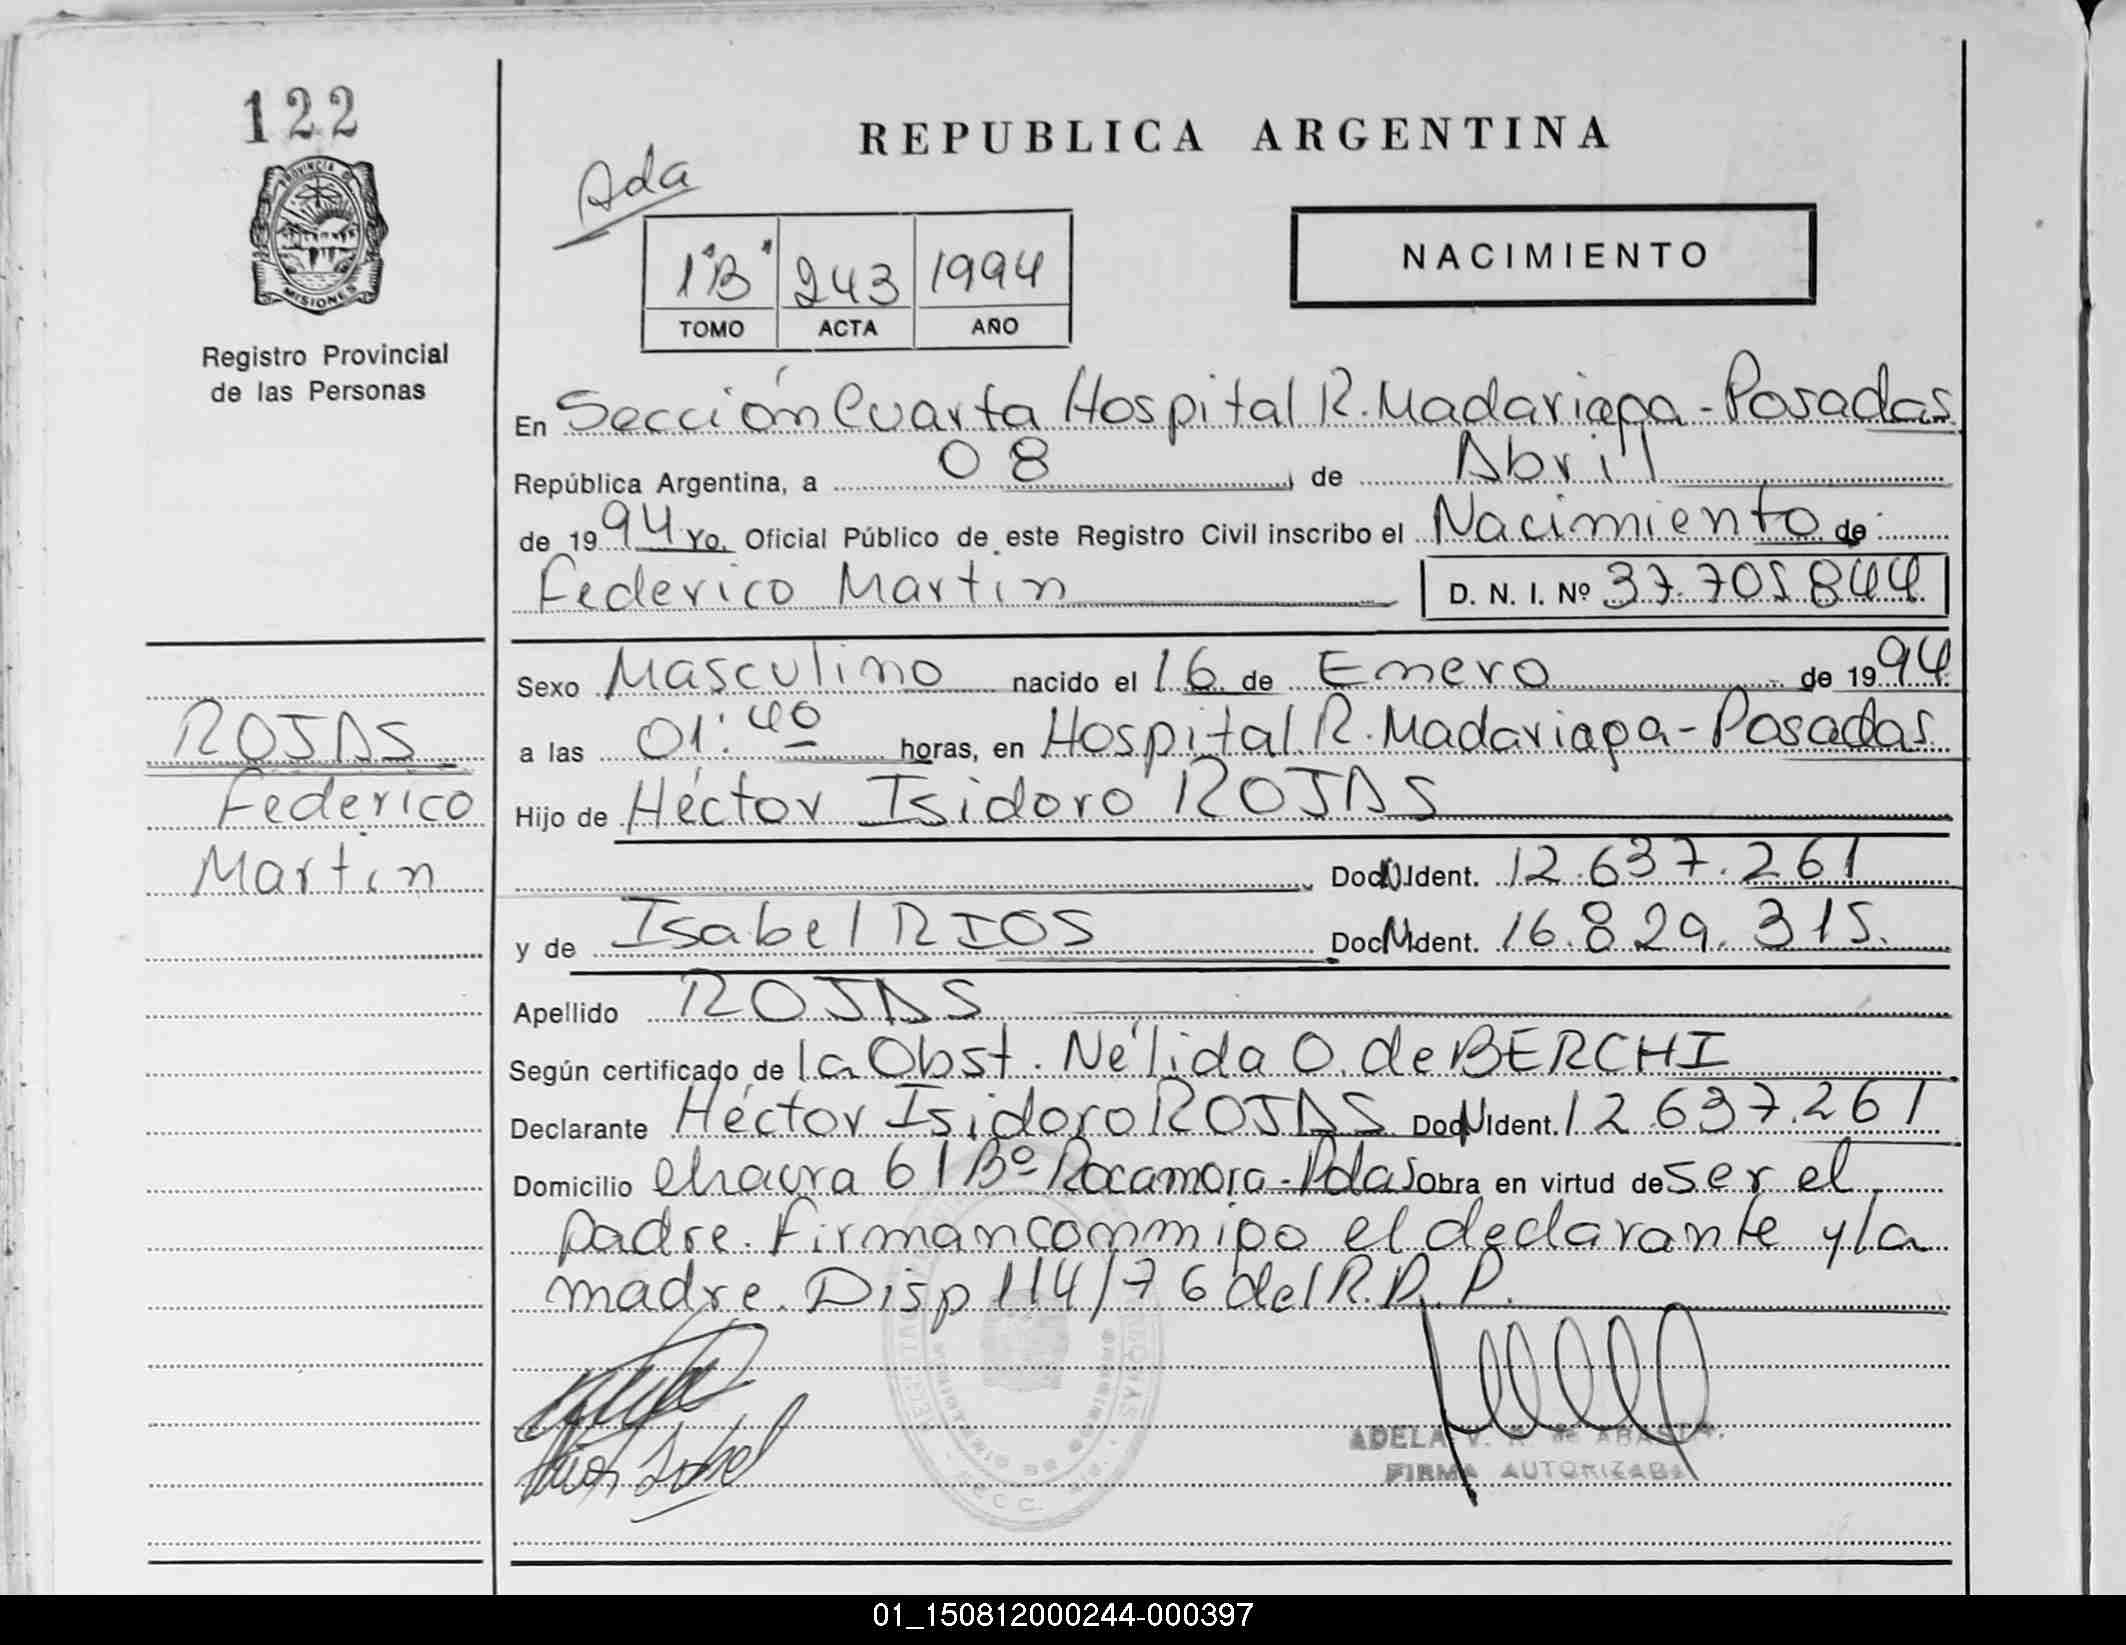 122
PROVINCIA D
MISIONES
Registro Provincial
de las Personas
ROJAS
Federico
Martin
REPUBLICA ARGENTINA
Ada
1"B" 243 1994
TOMO ACTA AÑO
NACIMIENTO
En Sección Cuarta Hospital R. Madariaga - Posadas
República Argentina, a 08 de Abril
de 1994 Yo, Oficial Público de este Registro Civil inscribo el Nacimiento de
Federico Martin D. N. I. Nº 37.705.844
Sexo Masculino nacido el 16 de Enero de 1994
a las 01:40 horas, en Hospital R. Madariaga - Posadas
Hijo de Héctor Isidoro ROJAS
Doc.N.Ident. 12.637.261
y de Isabel RIOS Doc.N.Ident. 16.829.315.
Apellido ROJAS
Según certificado de la Obst. Nélida O. de BERCHI
Declarante Héctor Isidoro ROJAS Doc.N.Ident. 12.637.261
Domicilio chacra 61 Bº Rocamora - Pdas obra en virtud de ser el
padre. Firman conmigo el declarante y la
madre. Disp 114/76 del R.P.P.
ADELA V. R. de
FIRMA AUTORIZADA
01_150812000244-000397